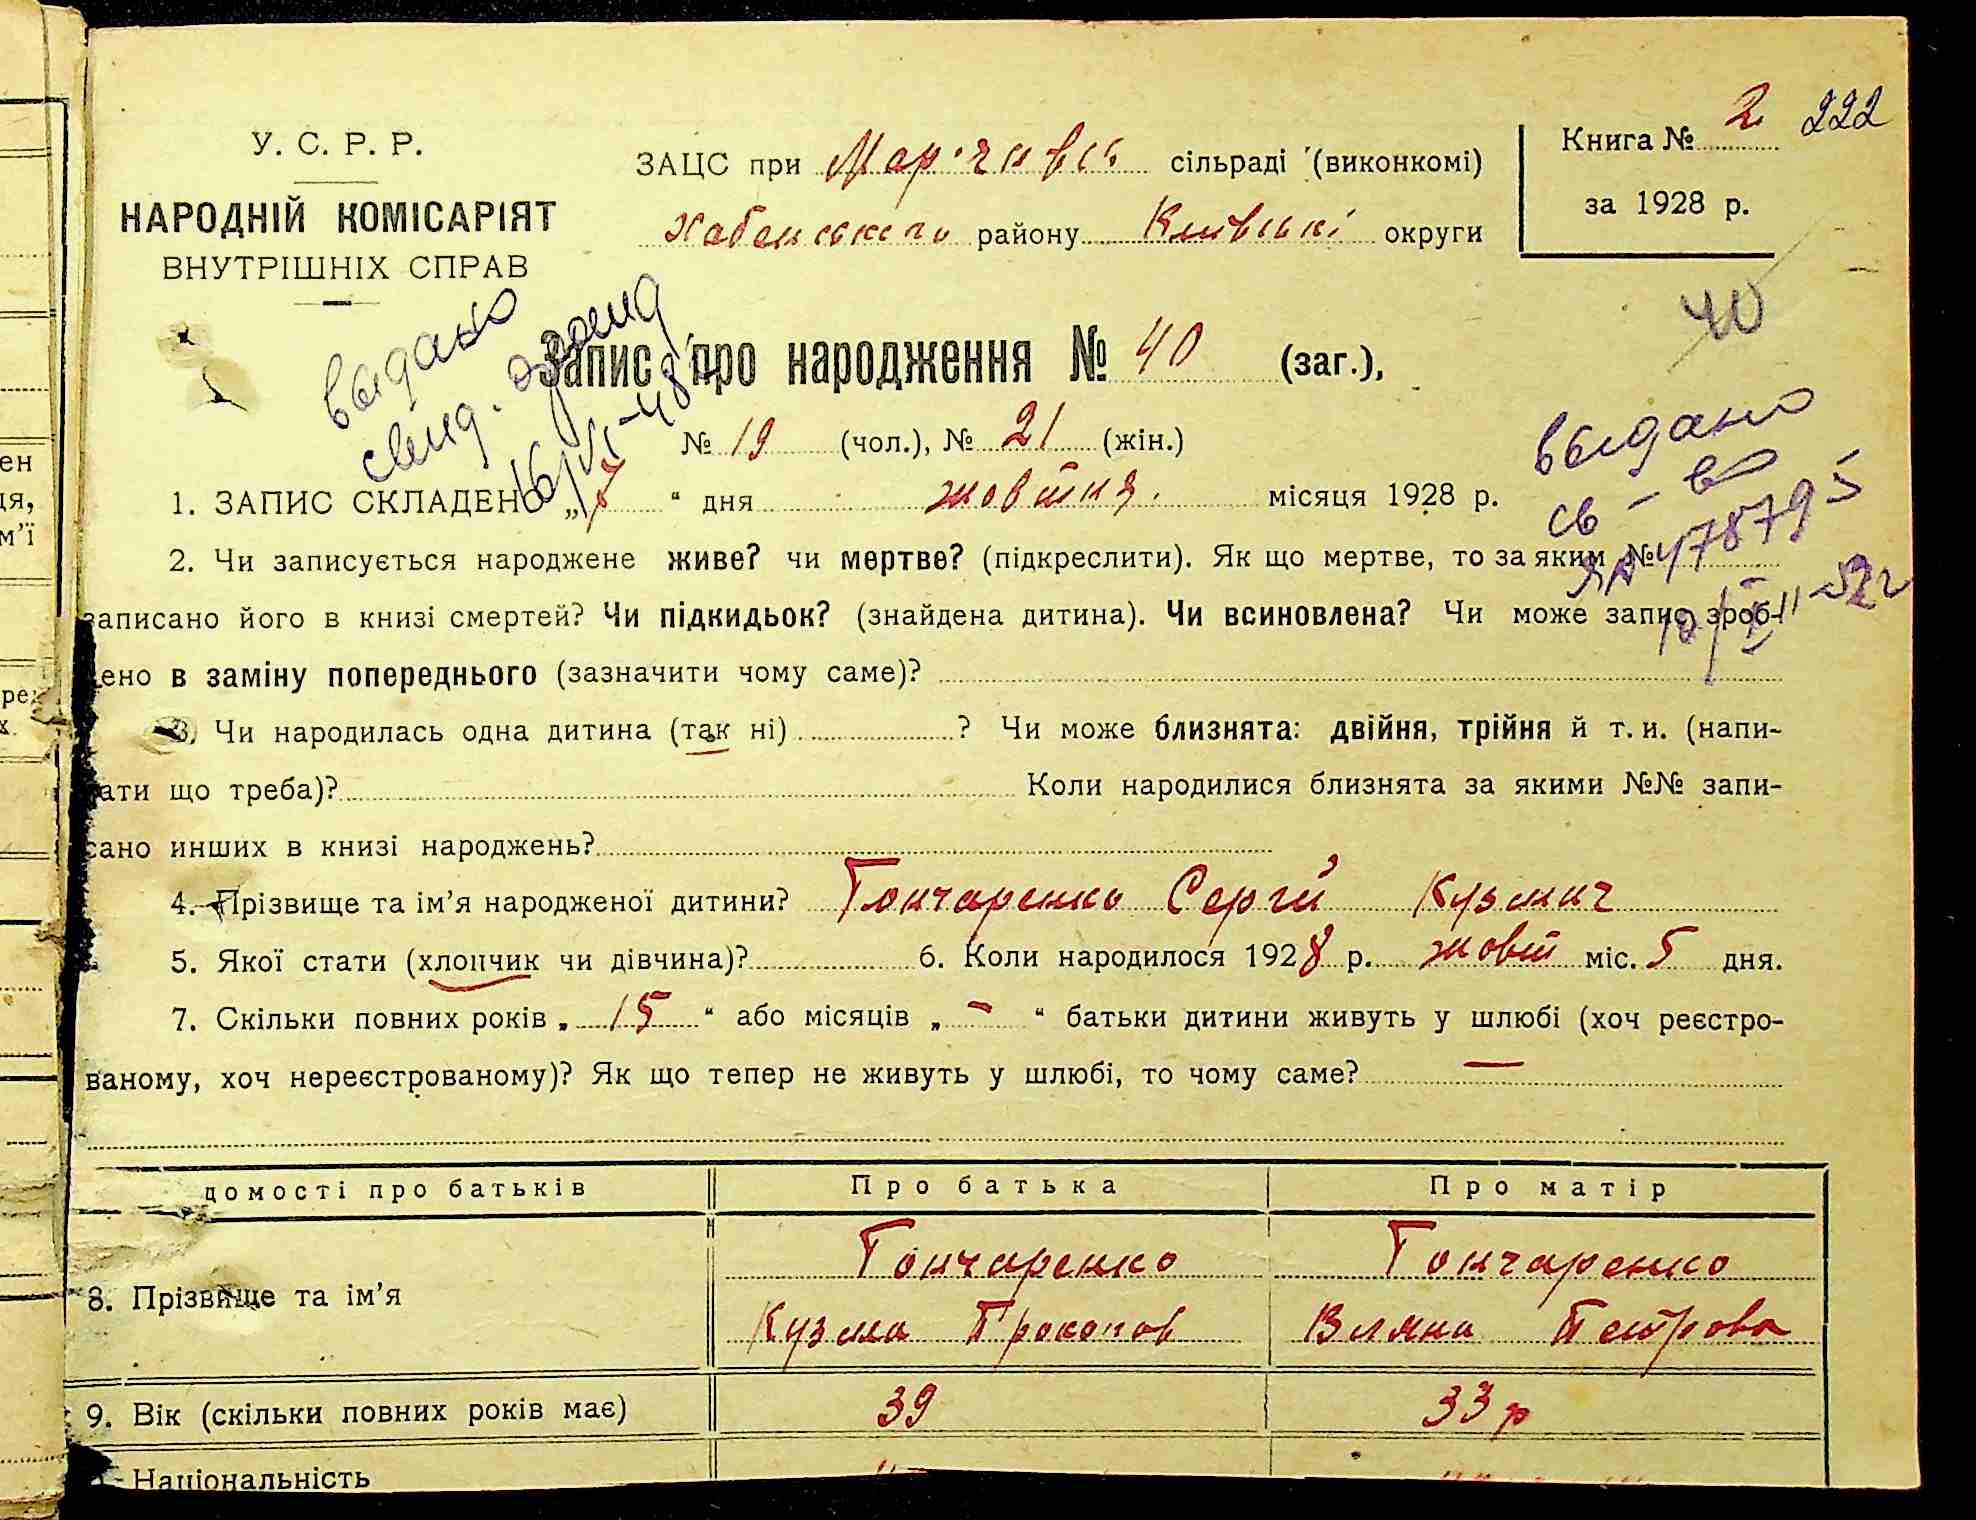 У. С. Р. Р.
НАРОДНІЙ КОМІСАРІЯТ
ВНУТРІШНІХ СПРАВ
ЗАЦС при сільраді (виконкомі)
Хабенського району Київські округи
Книга № 2 222
за 1928 р.
40
выдано
свид.
16/VI-48
Запис про народження № 40 (заг.),
№ 19 (чол.), № 21 (жін.)
выдано
св-во
ЯА 478795
1. ЗАПИС СКЛАДЕНО „7“ дня жовтня. місяця 1928 р.
2. Чи записується народжене живе? чи мертве? (підкреслити). Як що мертве, то за яким №
записано його в книзі смертей? Чи підкидьок? (знайдена дитина). Чи всиновлена? Чи може запис зроб-
лено в заміну попереднього (зазначити чому саме)?
3. Чи народилась одна дитина (так ні) ? Чи може близнята: двійня, трійня й т. и. (напи-
сати що треба)? Коли народилися близнята за якими №№ запи-
сано инших в книзі народжень?
4. Прізвище та ім'я народженої дитини? Гончаренко Сергій Кузмич
5. Якої стати (хлопчик чи дівчина)? 6. Коли народилося 1928 р. жовт міс. 5 дня.
7. Скільки повних років „ 15 “ або місяців „ - “ батьки дитини живуть у шлюбі (хоч реєстро-
ваному, хоч нереєстрованому)? Як що тепер не живуть у шлюбі, то чому саме? —
домості про батьків Про батька Про матір
8. Прізвище та ім'я
Гончаренко Гончаренко
Кузма Прокопов Петрова
9. Вік (скільки повних років має) 39 33 р
Національність
ен
ця,
м'ї
ре
х.